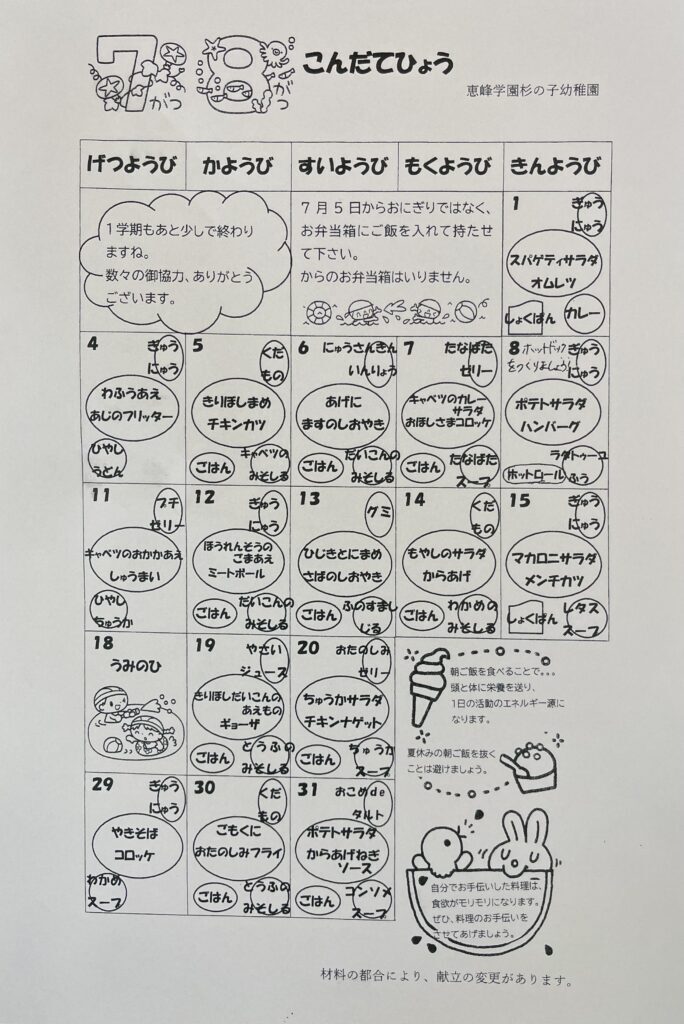 7がつ 8がつ こんだてひょう
恵峰学園杉の子幼稚園
げつようび かようび すいようび もくようび きんようび
1学期もあと少しで終わり
ますね。
数々の御協力、ありがとう
ございます。
7月5日からおにぎりではなく、
お弁当箱にご飯を入れて持たせ
て下さい。
からのお弁当箱はいりません。
1 ぎゅう
にゅう
スパゲティサラダ
オムレツ
しょくぱん カレー
4 ぎゅう
にゅう
わふうあえ
あじのフリッター
ひやし
うどん
5 くだ
もの
きりぼしまめ
チキンカツ
ごはん キャベツの
みそしる
6 にゅうさんきん
いんりょう
あげに
ますのしおやき
ごはん だいこんの
みそしる
7 たなばた
ゼリー
キャベツのカレー
サラダ
おほしさまコロッケ
ごはん たなばた
スープ
8 ホットドック
をつくりましょう!
ぎゅう
にゅう
ポテトサラダ
ハンバーグ
ホットロール ラタトゥーユ
ふう
11 プチ
ゼリー
キャベツのおかかあえ
しゅうまい
ひやし
ちゅうか
12 ぎゅう
にゅう
ほうれんそうの
ごまあえ
ミートボール
ごはん だいこんの
みそしる
13 グミ
ひじきとにまめ
さばのしおやき
ごはん ふのすまし
じる
14 くだ
もの
もやしのサラダ
からあげ
ごはん わかめの
みそしる
15 ぎゅう
にゅう
マカロニサラダ
メンチカツ
しょくぱん レタス
スープ
18
うみのひ
19 やさい
ジュース
きりぼしだいこんの
あえもの
ギョーザ
ごはん とうふの
みそしる
20 おたのしみ
ゼリー
ちゅうかサラダ
チキンナゲット
ごはん ちゅうか
スープ
朝ご飯を食べることで。。。
頭と体に栄養を送り、
1日の活動のエネルギー源に
なります。
夏休みの朝ご飯を抜く
ことは避けましょう。
29 ぎゅう
にゅう
やきそば
コロッケ
わかめ
スープ
30 くだ
もの
ごもくに
おたのしみフライ
ごはん とうふの
みそしる
31 おこめde
タルト
ポテトサラダ
からあげねぎ
ソース
ごはん コンソメ
スープ
自分でお手伝いした料理は、
食欲がモリモリになります。
ぜひ、料理のお手伝いを
させてあげましょう。
材料の都合により、献立の変更があります。